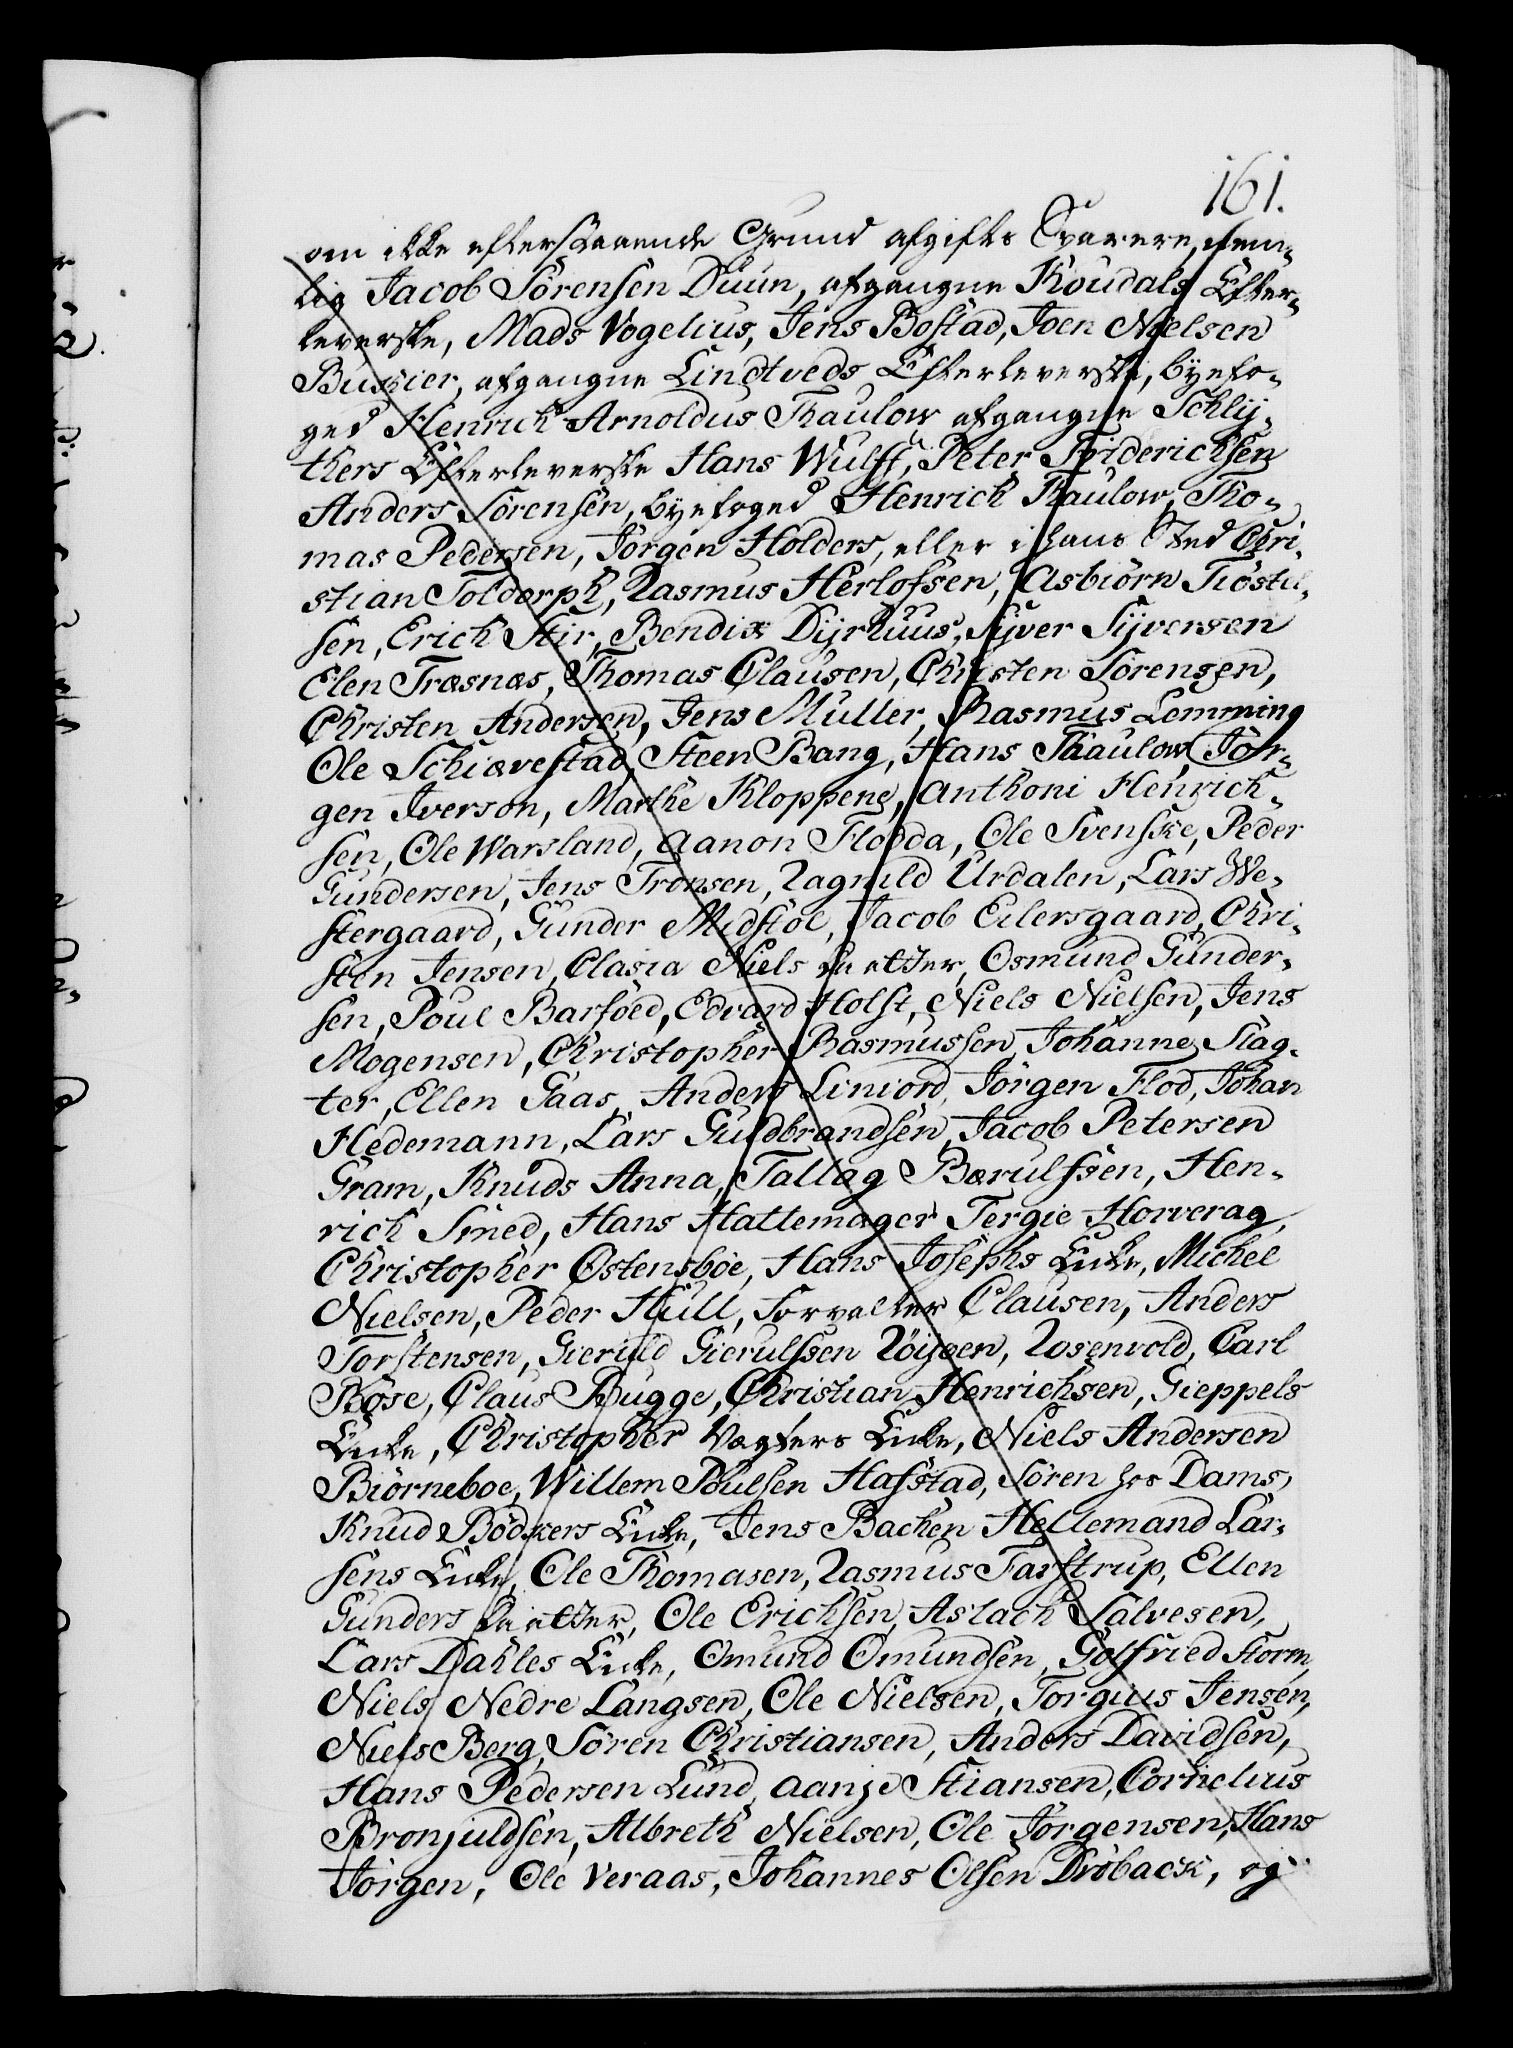 161.
om ikke efterstaaende Grund afgifts Svarere, nem-
lig Jacob Sörensen Duun, afgangne Koudals Efter-
leverske, Mads Vogelius, Jens Bostad, Joen Nielsen
Buskier, afgangne Lindtveds Efterleverske, byefo-
ged Henrich Arnoldus Thaulow afgangne Schly-
thers Efterleverske Hans Wulff, Peter Friderichsen
Anders Sörensen, byefoged Henrich Thaulow, Tho-
mas Pedersen, Jörgen Holders, eller i hans Sted Chri-
stian Toldorph, Rasmus Herlofsen, Asbiörn Tiöstel-
sen, Erich Stir, Bendix Dyrhuus, Syver Syversen
Elen Træsnæs, Thomas Clausen, Christen Sörensen,
Christen Andersen, Jens Muller, Rasmus Lemming
Ole Schiævestad, Steen Bang, Hans Thaulow, Jör-
gen Iverson, Marthe Kloppene, Anthoni Henrich-
sen, Ole Warsland, Aanon Flodda, Ole Svenske, Peder
Gundersen, Jens Tronsen, Ragnild Urdalen, Lars We-
stergaard, Gunder Midstöl, Jacob Eilersgaard, Chri-
sten Jensen, Clasia Niels Daatter, Osmund Gunder-
sen, Poul Barföed, Edvard Holst, Niels Nielsen, Jens
Mogensen, Christopher Rasmussen, Johanne Slag-
ter, Ellen Gaas, Anders Liniord, Jörgen Flod, Johan
Hedemann, Lars Guldbrandsen, Jacob Petersen
Gram, Knuds Anna, Tallag Bærulfsen, Hen-
rich Smed, Hans Hattemager Tergie Horverag,
Christopher Östensböe, Hans Josephs Enke, Michel
Nielsen, Peder Hull, Forvalter Clausen, Anders
Torstensen, Gieruld Gierulssen Röysen, Rosenvold, Carl
Röse, Claus Bugge, Christian Henrichsen, Gieppels
Enke, Christopher Vegters Enke, Niels Andersen
Biörneboe, Willem Poulsen Hafstad, Sören hos Dams,
Knud Bödkers Enke, Jens Bachen Hellemand Lar-
sens Enke, Ole Thomasen, Rasmus Farstrup, Ellen
Gunders Daatter, Ole Erichsen, Aslach Salvesen,
Lars Dahles Enke, Omund Omundsen, Golfried Storm,
Niels Nedre Langsen, Ole Nielsen, Torgius Jensen,
Niels Berg, Sören Christiansen, Anders Davidsen,
Hans Pedersen Lund, Aanje Stiansen, Cornelius
Bronjuldsen, Albreth Nielsen, Ole Jörgensen, Hans
Jörgen, Ole Veraas, Johannes Olsen Dröback, og